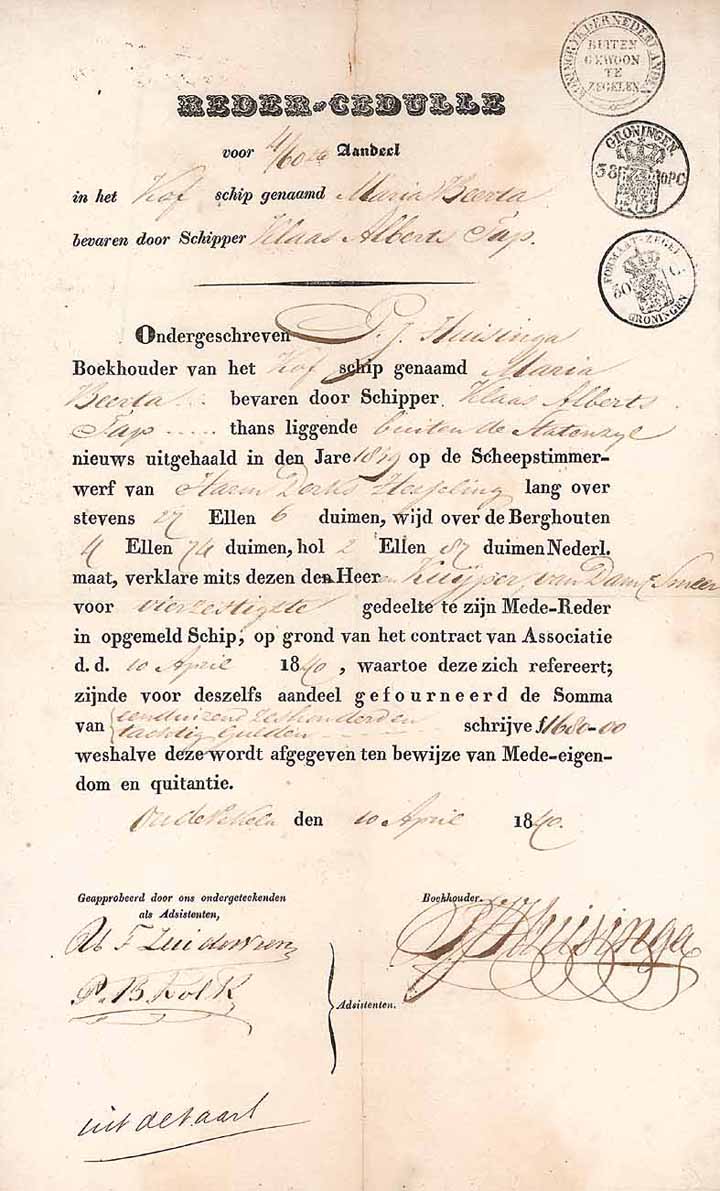 KONINGRYK DER NEDERLANDEN
BUITEN
GEWOON
TE
ZEGELEN
REDER-CEDULLE
voor 4/60ste Aandeel
GRONINGEN
38 OPC
in het Kof schip genaamd Maria Beerta
bevaren door Schipper Klaas Alberts Tap.
FORMAAT-ZEGEL
GRONINGEN
Ondergeschreven P. J. Huisinga
Boekhouder van het Kof schip genaamd Maria
Beerta bevaren door Schipper Klaas Alberts
Tap thans liggende buiten de Statenzyl
nieuws uitgehaald in den Jare 1839 op de Scheepstimmer-
werf van Harm Derks lang over
stevens 27 Ellen 6 duimen, wijd over de Berghouten
4 Ellen 74 duimen, hol 2 Ellen 87 duimen Nederl.
maat, verklare mits dezen den Heeren Kuijper, van Dam & Smeer
voor vierzestigste gedeelte te zijn Mede-Reder
in opgemeld Schip, op grond van het contract van Associatie
d. d. 10 April 1840, waartoe deze zich refereert;
zijnde voor deszelfs aandeel gefourneerd de Somma
van eenduizend zeshonderd en
tachtig Gulden schrijve ƒ1680-00
weshalve deze wordt afgegeven ten bewijze van Mede-eigen-
dom en quitantie.
Oude Pekela den 10 April 1840.
Geapprobeerd door ons ondergeteekenden
als Adsistenten,
Boekhouder.
F Zuiderveen
PJHuisinga
P. B Kolk
Adsistenten.
uitbetaalt